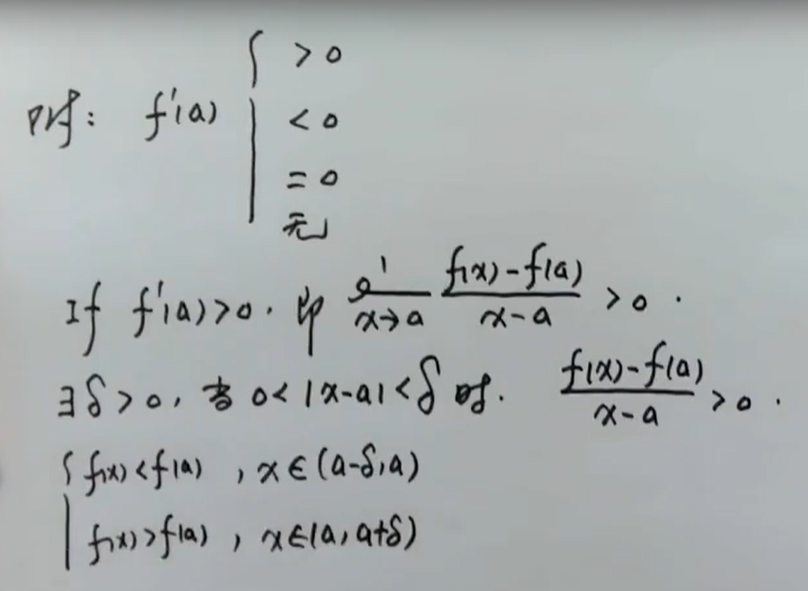 f'(a) { > 0
< 0
= 0
无
If f'(a)>0. 即 lim x→a f(x)-f(a) / x-a > 0.
∃δ>0, 当 0<|x-a|<δ 时. f(x)-f(a) / x-a > 0.
{ f(x)<f(a), x∈(a-δ,a)
f(x)>f(a), x∈(a,a+δ)